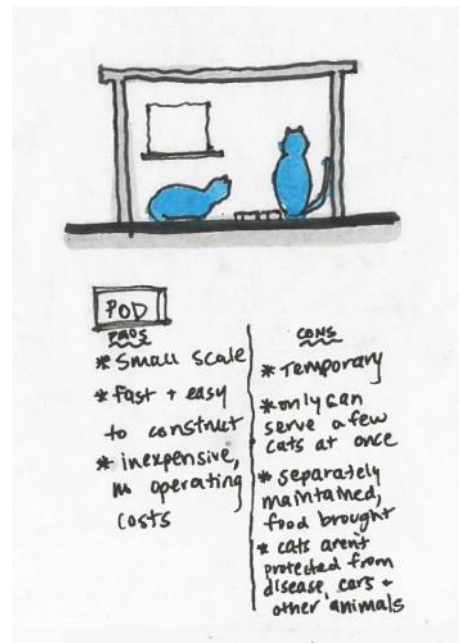 POD
PROS
* Small scale
* fast + easy
to construct
* inexpensive,
operating
costs
CONS
* Temporary
* only can
serve a few
cats at once
* separately
maintained,
food brought
* cats aren't
protected from
disease, cars +
other animals